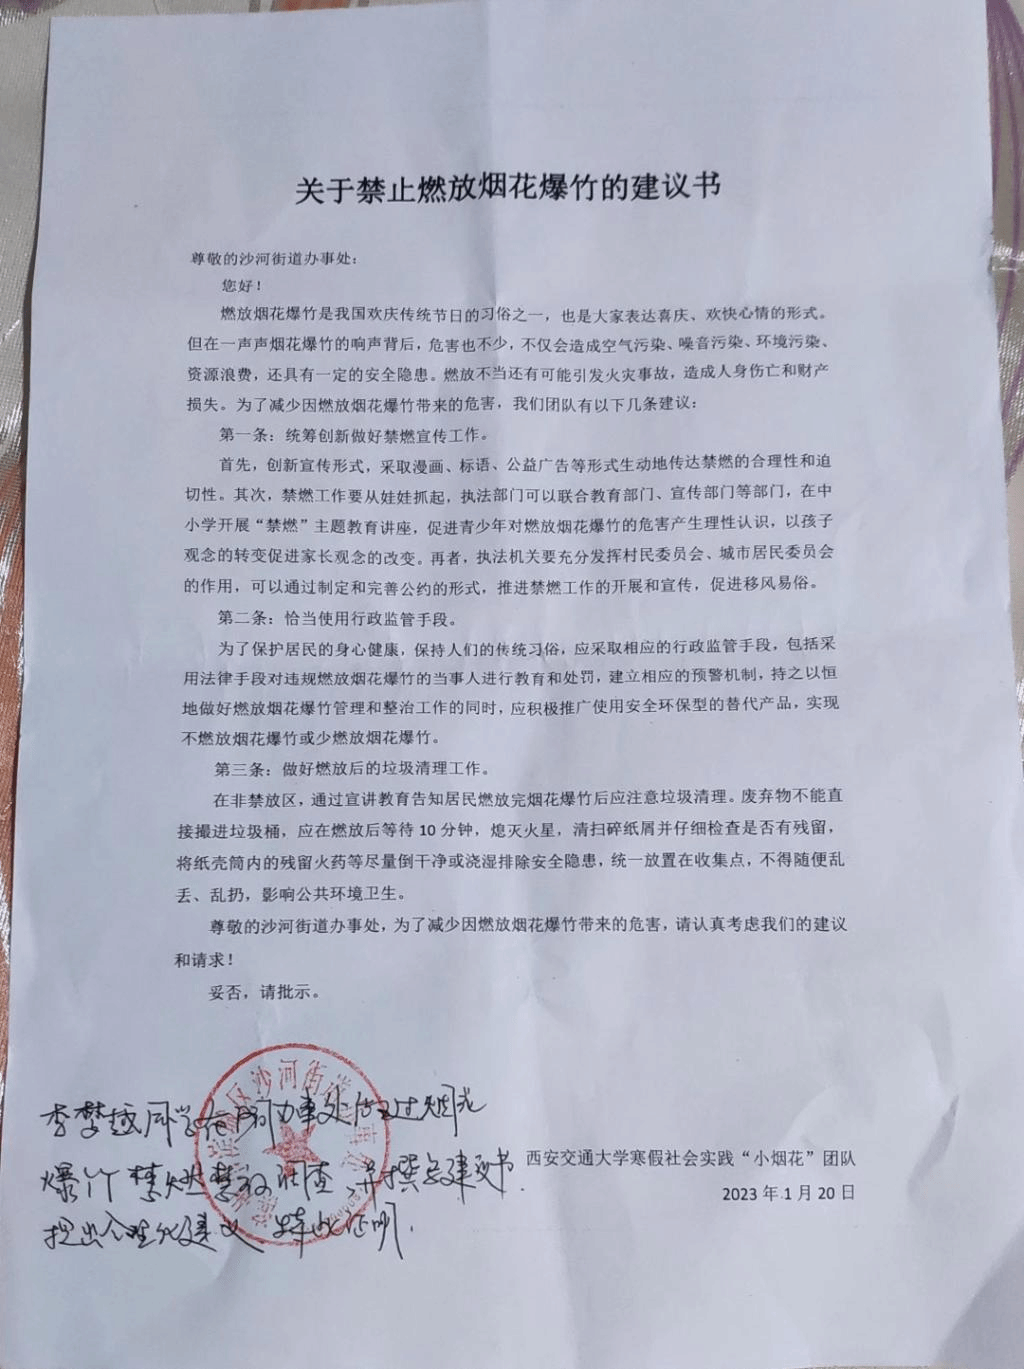 关于禁止燃放烟花爆竹的建议书
尊敬的沙河街道办事处：
您好！
燃放烟花爆竹是我国欢庆传统节日的习俗之一，也是大家表达喜庆、欢快心情的形式。
但在一声声烟花爆竹的响声背后，危害也不少，不仅会造成空气污染、噪音污染、环境污染、
资源浪费，还具有一定的安全隐患。燃放不当还有可能引发火灾事故，造成人身伤亡和财产
损失。为了减少因燃放烟花爆竹带来的危害，我们团队有以下几条建议：
第一条：统筹创新做好禁燃宣传工作。
首先，创新宣传形式，采取漫画、标语、公益广告等形式生动地传达禁燃的合理性和迫
切性。其次，禁燃工作要从娃娃抓起，执法部门可以联合教育部门、宣传部门等部门，在中
小学开展“禁燃”主题教育讲座，促进青少年对燃放烟花爆竹的危害产生理性认识，以孩子
观念的转变促进家长观念的改变。再者，执法机关要充分发挥村民委员会、城市居民委员会
的作用，可以通过制定和完善公约的形式，推进禁燃工作的开展和宣传，促进移风易俗。
第二条：恰当使用行政监管手段。
为了保护居民的身心健康，保持人们的传统习俗，应采取相应的行政监管手段，包括采
用法律手段对违规燃放烟花爆竹的当事人进行教育和处罚，建立相应的预警机制，持之以恒
地做好燃放烟花爆竹管理和整治工作的同时，应积极推广使用安全环保型的替代产品，实现
不燃放烟花爆竹或少燃放烟花爆竹。
第三条：做好燃放后的垃圾清理工作。
在非禁放区，通过宣讲教育告知居民燃放完烟花爆竹后应注意垃圾清理。废弃物不能直
接撮进垃圾桶，应在燃放后等待 10 分钟，熄灭火星，清扫碎纸屑并仔细检查是否有残留，
将纸壳筒内的残留火药等尽量倒干净或浇湿排除安全隐患，统一放置在收集点，不得随便乱
丢、乱扔，影响公共环境卫生。
尊敬的沙河街道办事处，为了减少因燃放烟花爆竹带来的危害，请认真考虑我们的建议
和请求！
妥否，请批示。
区沙河街道办事处
李梦越同学在我办事处做过烟花
爆竹禁燃禁放调查，并撰写建议书
提出合理化建议，特此证明.
西安交通大学寒假社会实践“小烟花”团队
2023 年 1 月 20 日